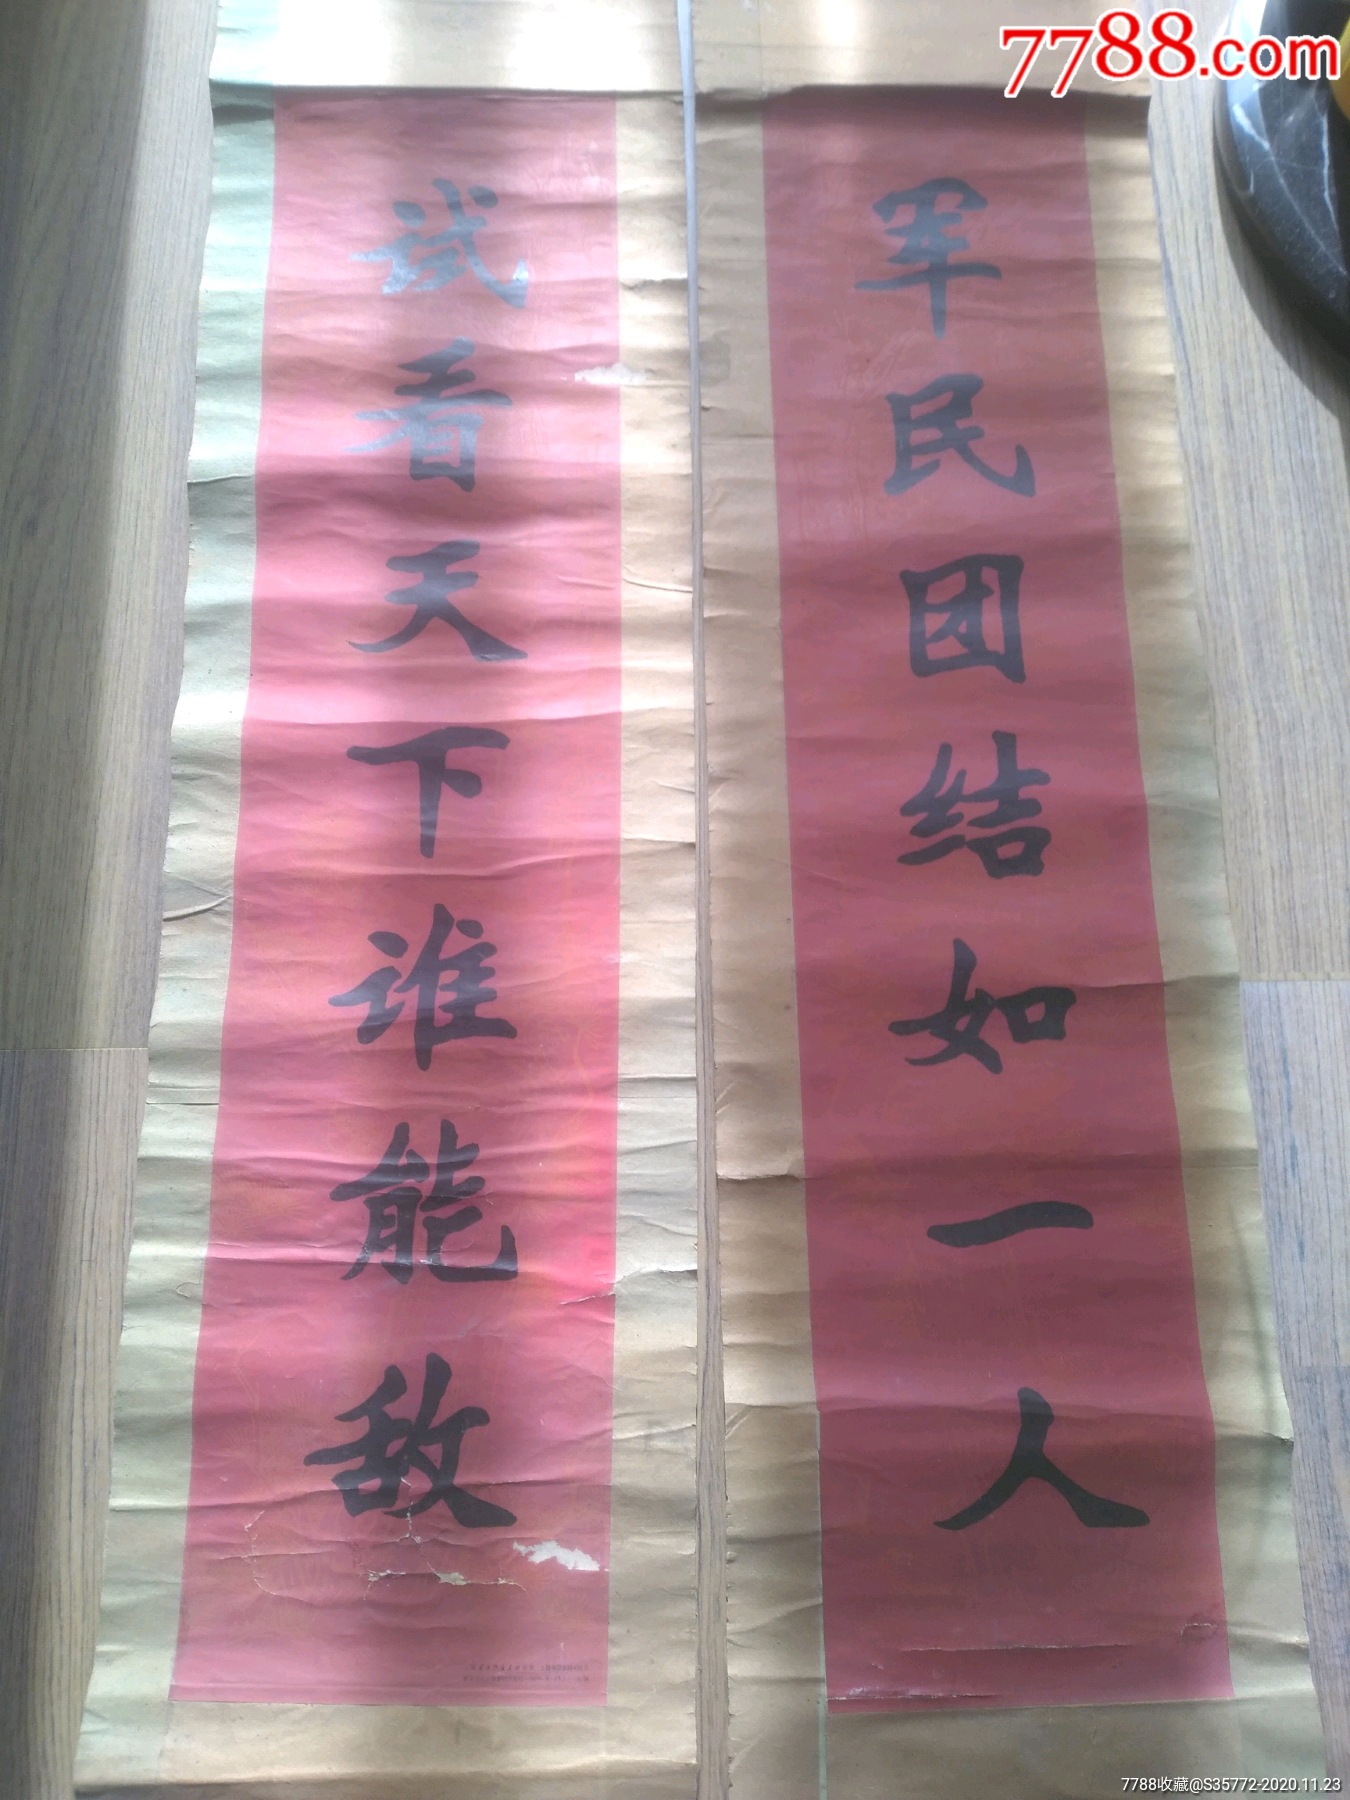 7788.com
军民团结如一人
试看天下谁能敌
7788收藏@S35772-2020.11.23